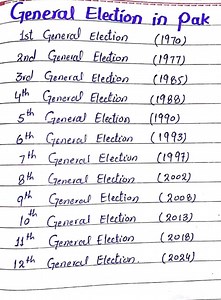 General Election in Pak
1st General Election (1970)
2nd General Election (1977)
3rd General Election (1985)
4th General Election (1988)
5th General Election (1990)
6th General Election (1993)
7th General Election (1997)
8th General Election (2002)
9th General Election (2008)
10th General Election (2013)
11th General Election (2018)
12th General Election. (2024)